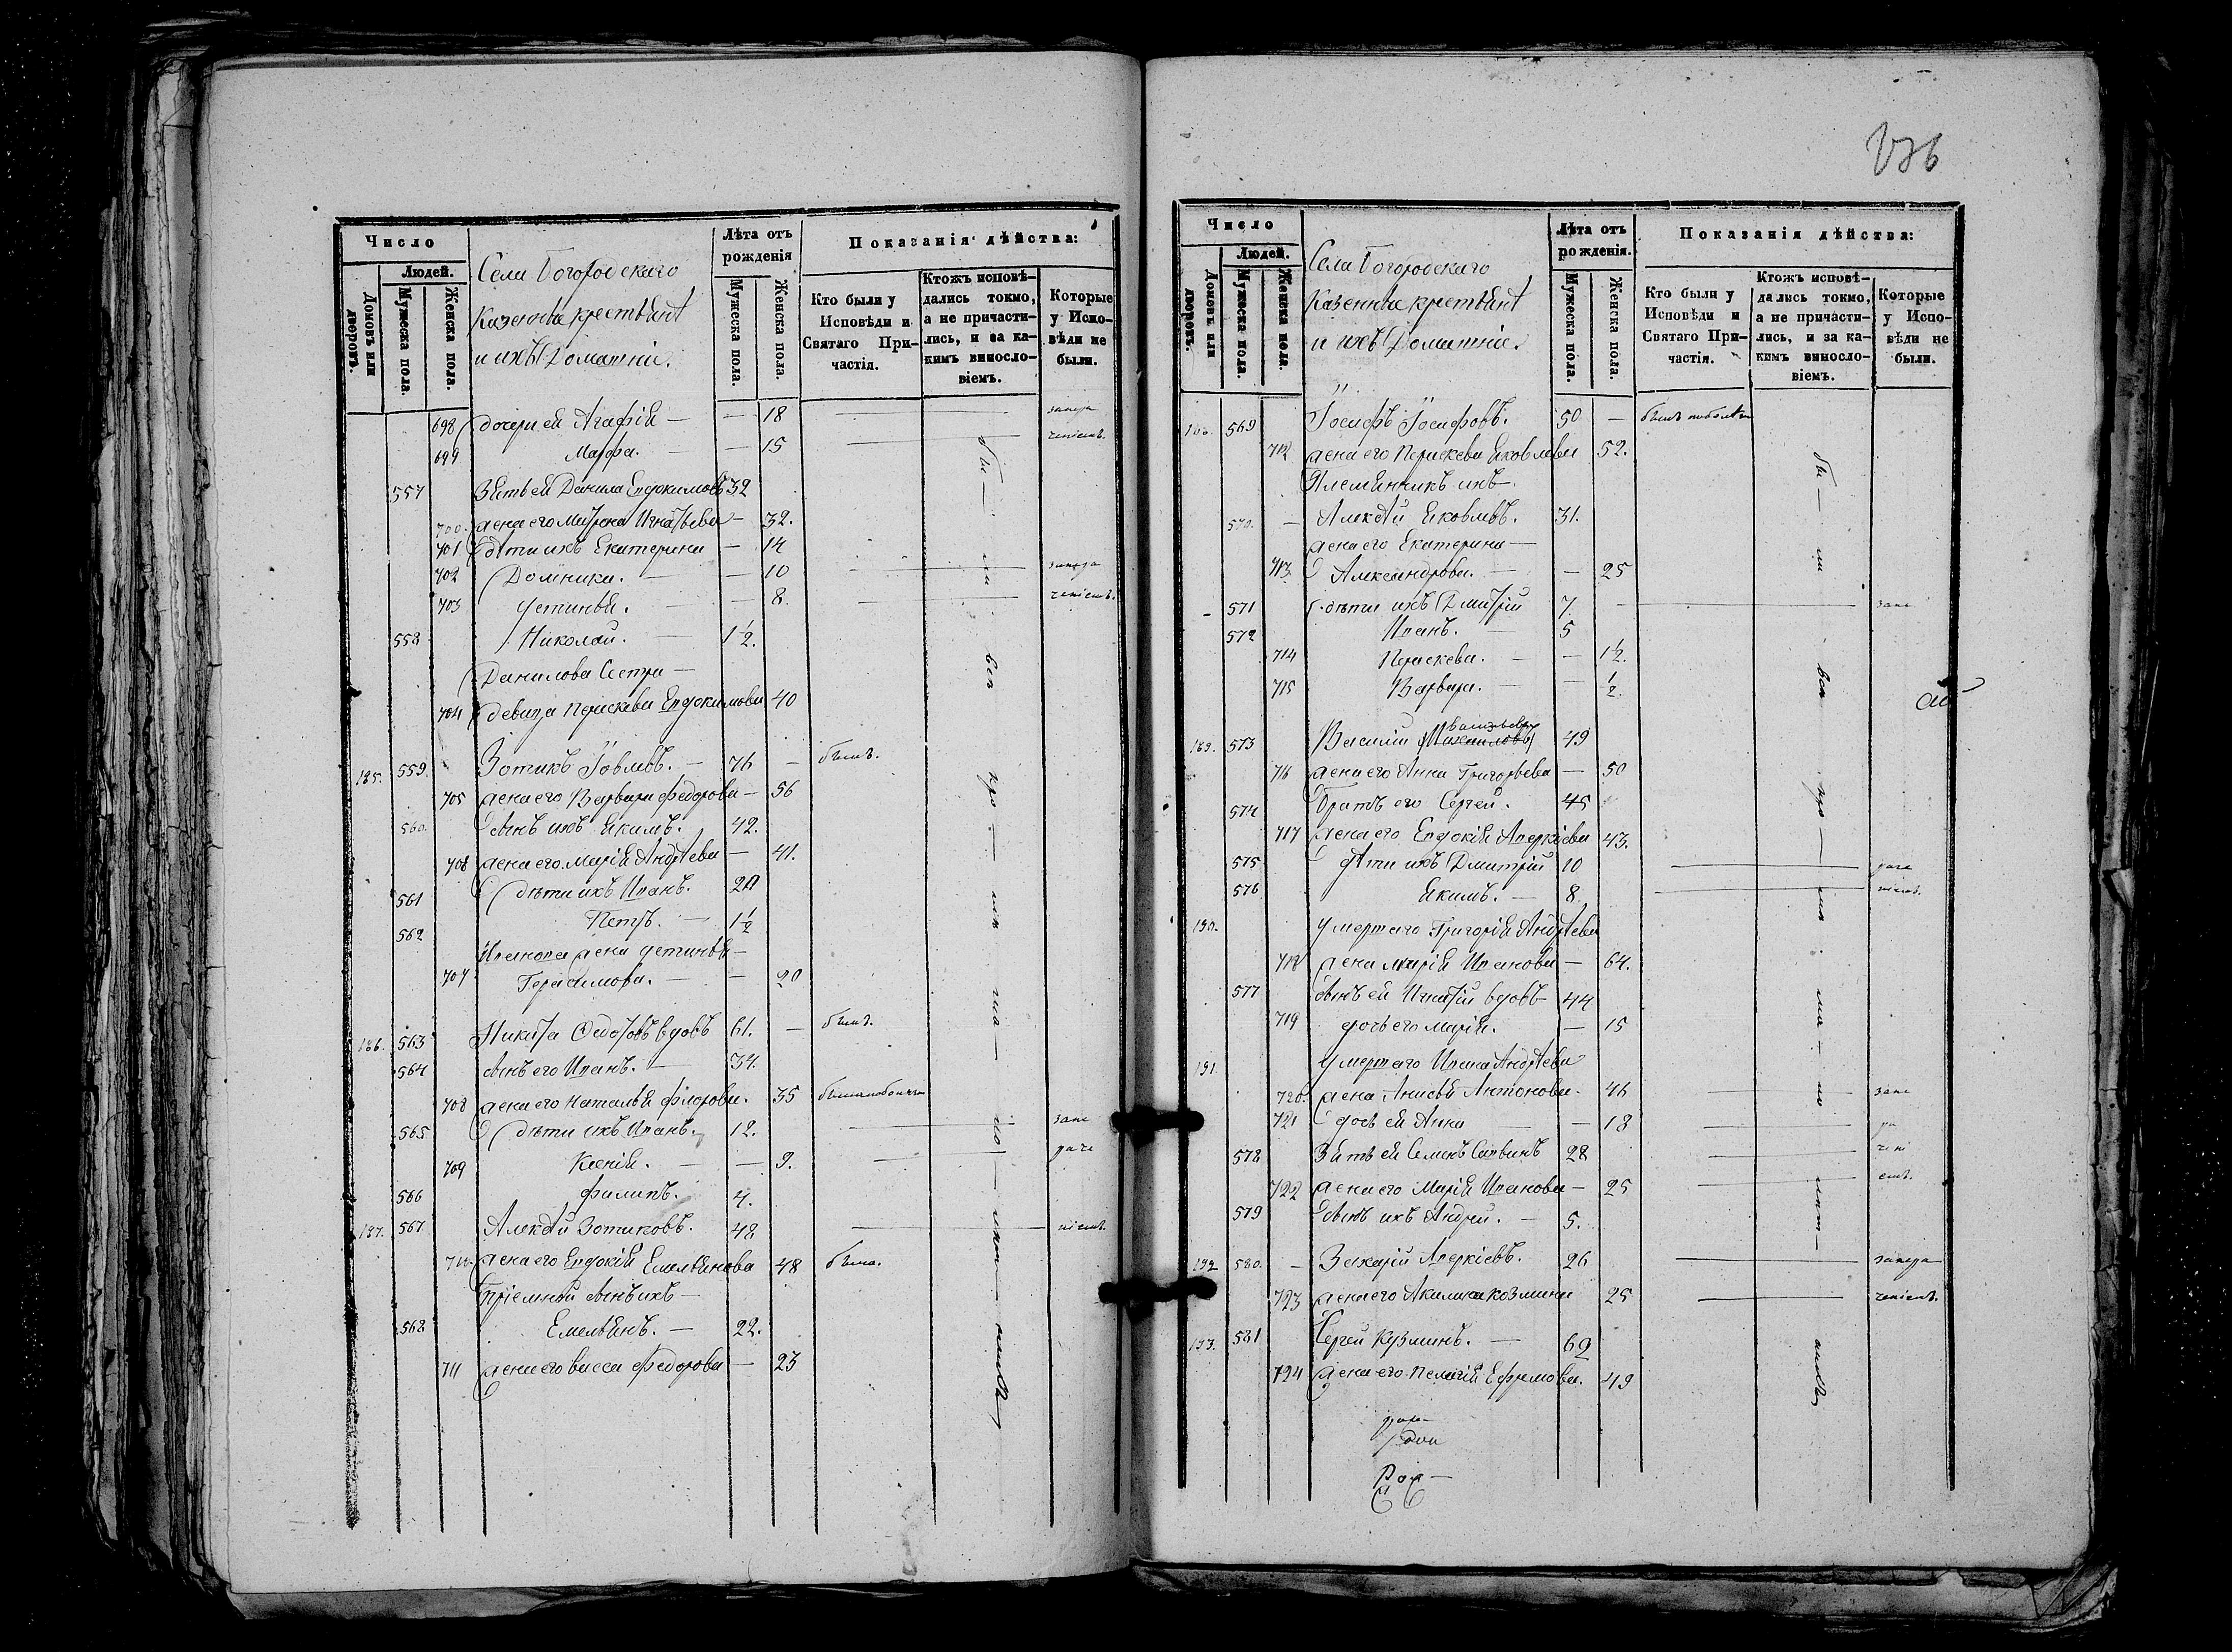 Число
Людей.
Домовъ или дворовъ.
Мужеска пола.
Женска пола.
Села Богородскаго
Казенные крестьянѣ
и ихъ Домашніе.
Лѣта отъ рожденія
Мужеска пола.
Женска пола.
Показанія дѣйства:
Кто были у Исповѣди и Святаго Причастія.
Ктожъ исповѣдались токмо, а не причастились, и за какимъ винословіемъ.
Которые у Исповѣди не были.
698 дочери ей Агафія — — 18
699 Марфа. — — 15
557 Зять ей Данила Евдокимовъ 32
700 жена его Матрона Игнатьева — 32.
701 дѣти ихъ Екатерина — 14
702 Домника. — — 10
703 Устинья. — — 8.
558 Николай. — 1½.
Данилова Сестра —
704 девица Параскева Евдокимова 40
185. 559. Зотикъ Іовлевъ. — 76 — былъ.
705 жена его Варвара Федорова — 56
560. сынъ ихъ Якимъ. 42.
706 жена его Марія Андрѣева — 41.
561 дѣти ихъ Иванъ. 20
562 Петръ. — 1½
Иванова жена Устинья —
707 Герасимова. — — 20
186. 563 Никита Федотовъ вдовъ 61. — былъ.
564 сынъ его Иванъ. — 34.
708 жена его Наталья Фролова. 35
565 дѣти ихъ Иванъ. 12.
709 Ксенія. — — 9.
566 Филипъ. 4.
187. 567 Алексѣй Зотиковъ. 48
710. жена его Евдокія Емельянова 48 была.
пріемной сынъ ихъ —
568 Емельянъ. — 22.
711 жена его Васса Федорова — 23
Число
Людей.
Домовъ или дворовъ.
Мужеска пола.
Женска пола.
Села Богородскаго
Казенные крестьянѣ
и ихъ Домашніе.
Лѣта отъ рожденія.
Мужеска пола.
Женска пола.
Показанія дѣйства:
Кто были у Исповѣди и Святаго Причастія.
Ктожъ исповѣдались токмо, а не причастились, и за какимъ винословіемъ.
Которые у Исповѣди не были.
188. 569 Іосифъ Іосифовъ. 50 —
712 жена его Параскева Яковлева 52.
Племянникъ ихъ
570. — Алексѣй Яковлевъ. 31.
жена его Екатерина —
713 Александрова. — — 25
571 дѣти ихъ Дмитрій 7.
572 Иванъ. — 5
714 Параскева. — — 1½.
715 Варвара. — — ½.
189. 573 Василій Васильевъ 49
716 жена его Анна Григорьева — 50
574 Братъ его Сергей. 45
717 жена его Евдокія Аверкіева 43.
575 дѣти ихъ Дмитрій 10
576 Якимъ. — 8
190. Умершаго Григорія Андрѣева
718 жена Марія Иванова — 64.
577 сынъ ей Игнатій вдовъ 44
719 дочь его Марія. — 15
191. Умершаго Ивана Андрѣева
720. жена Анисья Антонова. 46
721 дочь ей Анна — 18
578 Зять ей Семенъ Саввинъ 28
722 жена его Марія Иванова — 25
579 сынъ ихъ Андрей. — 5.
192 580. — Захарій Аверкіевъ. 26
723 жена его Акилина Козмина 25
193. 581 Сергей Кузминъ. — 69
724 жена его Пелагія Ефремова. 49